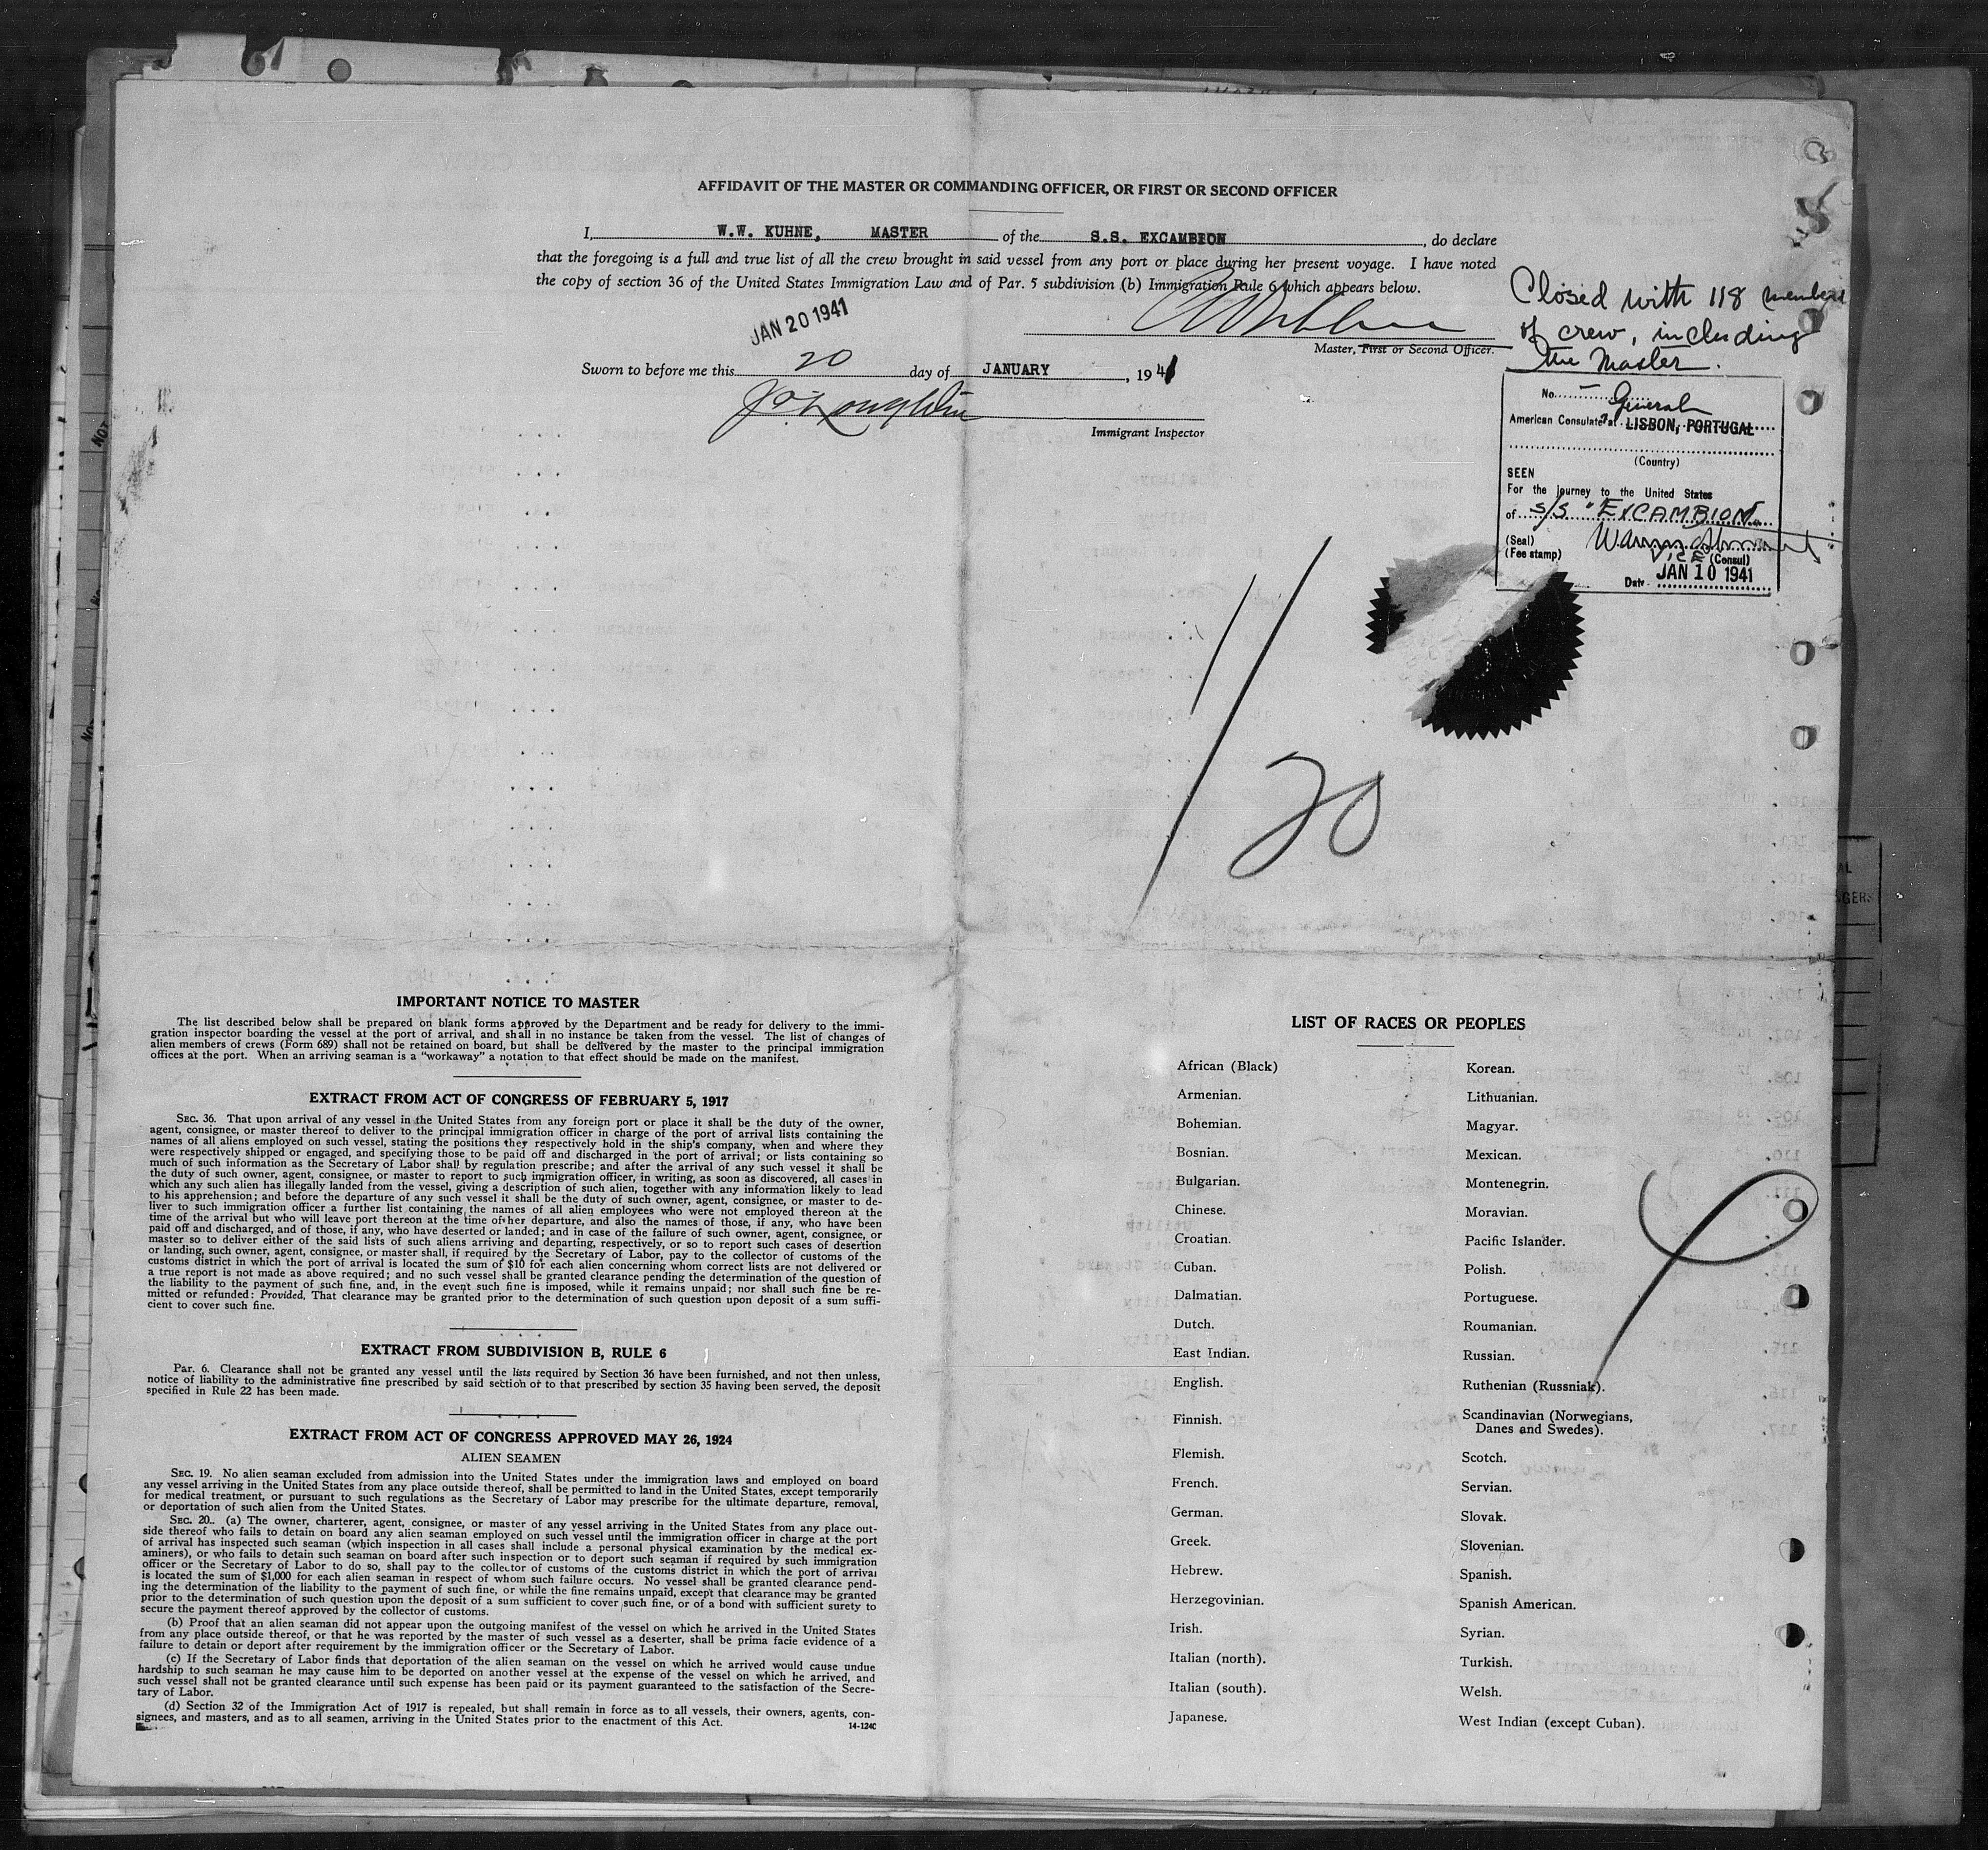 AFFIDAVIT OF THE MASTER OR COMMANDING OFFICER, OR FIRST OR SECOND OFFICER
I, W.W. KUHNE, MASTER of the S.S. EXCAMBION, do declare
that the foregoing is a full and true list of all the crew brought in said vessel from any port or place during her present voyage. I have noted
the copy of section 36 of the United States Immigration Law and of Par. 5 subdivision (b) Immigration Rule 6 which appears below.
JAN 20 1941
Master, First or Second Officer.
Sworn to before me this 20 day of JANUARY, 1941
Immigrant Inspector
Closed with 118 members
of crew, including
the Master.
No.
General
American Consulate at LISBON, PORTUGAL
(Country)
SEEN
For the journey to the United States
of S/S "EXCAMBION"
(Seal)
(Fee stamp)
VICE (Consul)
Date JAN 10 1941
1/20
IMPORTANT NOTICE TO MASTER
The list described below shall be prepared on blank forms approved by the Department and be ready for delivery to the immi-
gration inspector boarding the vessel at the port of arrival, and shall in no instance be taken from the vessel. The list of changes of
alien members of crews (Form 689) shall not be retained on board, but shall be delivered by the master to the principal immigration
offices at the port. When an arriving seaman is a "workaway" a notation to that effect should be made on the manifest.
EXTRACT FROM ACT OF CONGRESS OF FEBRUARY 5, 1917
SEC. 36. That upon arrival of any vessel in the United States from any foreign port or place it shall be the duty of the owner,
agent, consignee, or master thereof to deliver to the principal immigration officer in charge of the port of arrival lists containing the
names of all aliens employed on such vessel, stating the positions they respectively hold in the ship's company, when and where they
were respectively shipped or engaged, and specifying those to be paid off and discharged in the port of arrival; or lists containing so
much of such information as the Secretary of Labor shall by regulation prescribe; and after the arrival of any such vessel it shall be
the duty of such owner, agent, consignee, or master to report to such immigration officer, in writing, as soon as discovered, all cases in
which any such alien has illegally landed from the vessel, giving a description of such alien, together with any information likely to lead
to his apprehension; and before the departure of any such vessel it shall be the duty of such owner, agent, consignee, or master to de-
liver to such immigration officer a further list containing the names of all alien employees who were not employed thereon at the
time of the arrival but who will leave port thereon at the time of her departure, and also the names of those, if any, who have been
paid off and discharged, and of those, if any, who have deserted or landed; and in case of the failure of such owner, agent, consignee, or
master so to deliver either of the said lists of such aliens arriving and departing, respectively, or so to report such cases of desertion
or landing, such owner, agent, consignee, or master shall, if required by the Secretary of Labor, pay to the collector of customs of the
customs district in which the port of arrival is located the sum of $10 for each alien concerning whom correct lists are not delivered or
a true report is not made as above required; and no such vessel shall be granted clearance pending the determination of the question of
the liability to the payment of such fine, and, in the event such fine is imposed, while it remains unpaid; nor shall such fine be re-
mitted or refunded: Provided, That clearance may be granted prior to the determination of such question upon deposit of a sum suffi-
cient to cover such fine.
EXTRACT FROM SUBDIVISION B, RULE 6
Par. 6. Clearance shall not be granted any vessel until the lists required by Section 36 have been furnished, and not then unless,
notice of liability to the administrative fine prescribed by said section or to that prescribed by section 35 having been served, the deposit
specified in Rule 22 has been made.
EXTRACT FROM ACT OF CONGRESS APPROVED MAY 26, 1924
ALIEN SEAMEN
SEC. 19. No alien seaman excluded from admission into the United States under the immigration laws and employed on board
any vessel arriving in the United States from any place outside thereof, shall be permitted to land in the United States, except temporarily
for medical treatment, or pursuant to such regulations as the Secretary of Labor may prescribe for the ultimate departure, removal,
or deportation of such alien from the United States.
SEC. 20. (a) The owner, charterer, agent, consignee, or master of any vessel arriving in the United States from any place out-
side thereof who fails to detain on board any alien seaman employed on such vessel until the immigration officer in charge at the port
of arrival has inspected such seaman (which inspection in all cases shall include a personal physical examination by the medical ex-
aminers), or who fails to detain such seaman on board after such inspection or to deport such seaman if required by such immigration
officer or the Secretary of Labor to do so, shall pay to the collector of customs of the customs district in which the port of arrival
is located the sum of $1,000 for each alien seaman in respect of whom such failure occurs. No vessel shall be granted clearance pend-
ing the determination of the liability to the payment of such fine, or while the fine remains unpaid, except that clearance may be granted
prior to the determination of such question upon the deposit of a sum sufficient to cover such fine, or of a bond with sufficient surety to
secure the payment thereof approved by the collector of customs.
(b) Proof that an alien seaman did not appear upon the outgoing manifest of the vessel on which he arrived in the United States
from any place outside thereof, or that he was reported by the master of such vessel as a deserter, shall be prima facie evidence of a
failure to detain or deport after requirement by the immigration officer or the Secretary of Labor.
(c) If the Secretary of Labor finds that deportation of the alien seaman on the vessel on which he arrived would cause undue
hardship to such seaman he may cause him to be deported on another vessel at the expense of the vessel on which he arrived, and
such vessel shall not be granted clearance until such expense has been paid or its payment guaranteed to the satisfaction of the Secre-
tary of Labor.
(d) Section 32 of the Immigration Act of 1917 is repealed, but shall remain in force as to all vessels, their owners, agents, con-
signees, and masters, and as to all seamen, arriving in the United States prior to the enactment of this Act.
14-124C
LIST OF RACES OR PEOPLES
African (Black)
Armenian.
Bohemian.
Bosnian.
Bulgarian.
Chinese.
Croatian.
Cuban.
Dalmatian.
Dutch.
East Indian.
English.
Finnish.
Flemish.
French.
German.
Greek.
Hebrew.
Herzegovinian.
Irish.
Italian (north).
Italian (south).
Japanese.
Korean.
Lithuanian.
Magyar.
Mexican.
Montenegrin.
Moravian.
Pacific Islander.
Polish.
Portuguese.
Roumanian.
Russian.
Ruthenian (Russniak).
Scandinavian (Norwegians,
Danes and Swedes).
Scotch.
Servian.
Slovak.
Slovenian.
Spanish.
Spanish American.
Syrian.
Turkish.
Welsh.
West Indian (except Cuban).